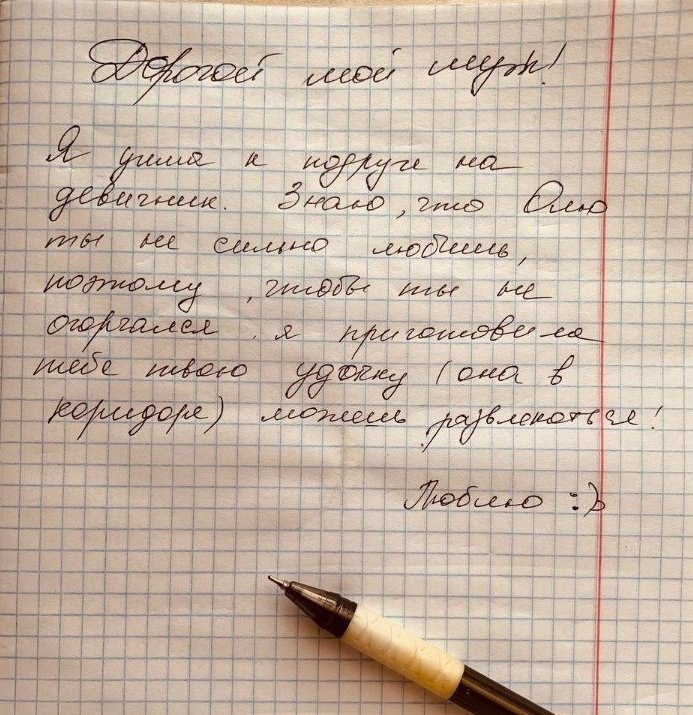 Дорогой мой муж!
Я ушла к подруге на
девичник. Знаю, что Олю
ты не сильно любишь,
поэтому, чтобы ты не
огорчался, я приготовила
тебе твою удочку (она в
коридоре) можешь развлекаться!
Люблю :)